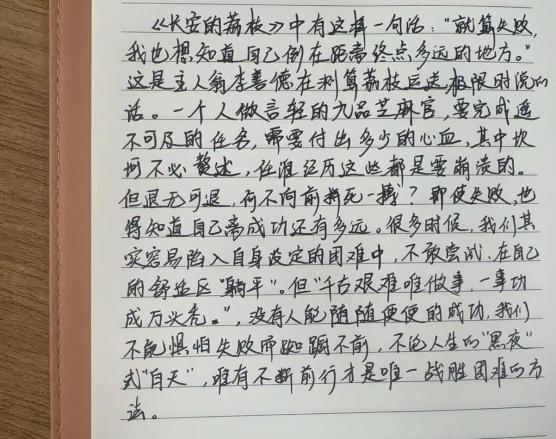 《长安的荔枝》中有这样一句话："就算失败,
我也想知道自己倒在距离终点多远的地方。"
这是主人翁李善德在测算荔枝运送极限时说的
话。一个人微言轻的九品芝麻官,要完成遥
不可及的任务,需要付出多少的心血,其中坎
坷不必赘述,任谁经历这些都是要崩溃的。
但退无可退,何不向前拼死一搏?即使失败,也
得知道自己离成功还有多远。很多时候,我们其
实容易陷入自身设定的困难中,不敢尝试,在自己
的舒适区"躺平"。但"千古艰难唯做事,一事功
成万头秃。",没有人能随随便便的成功,我们
不能惧怕失败而踟蹰不前,不论人生的"黑夜"
或"白天",唯有不断前行才是唯一战胜困难的方
法。